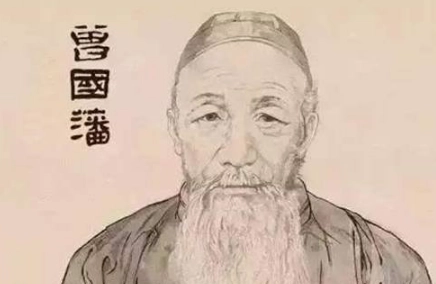 曾國藩